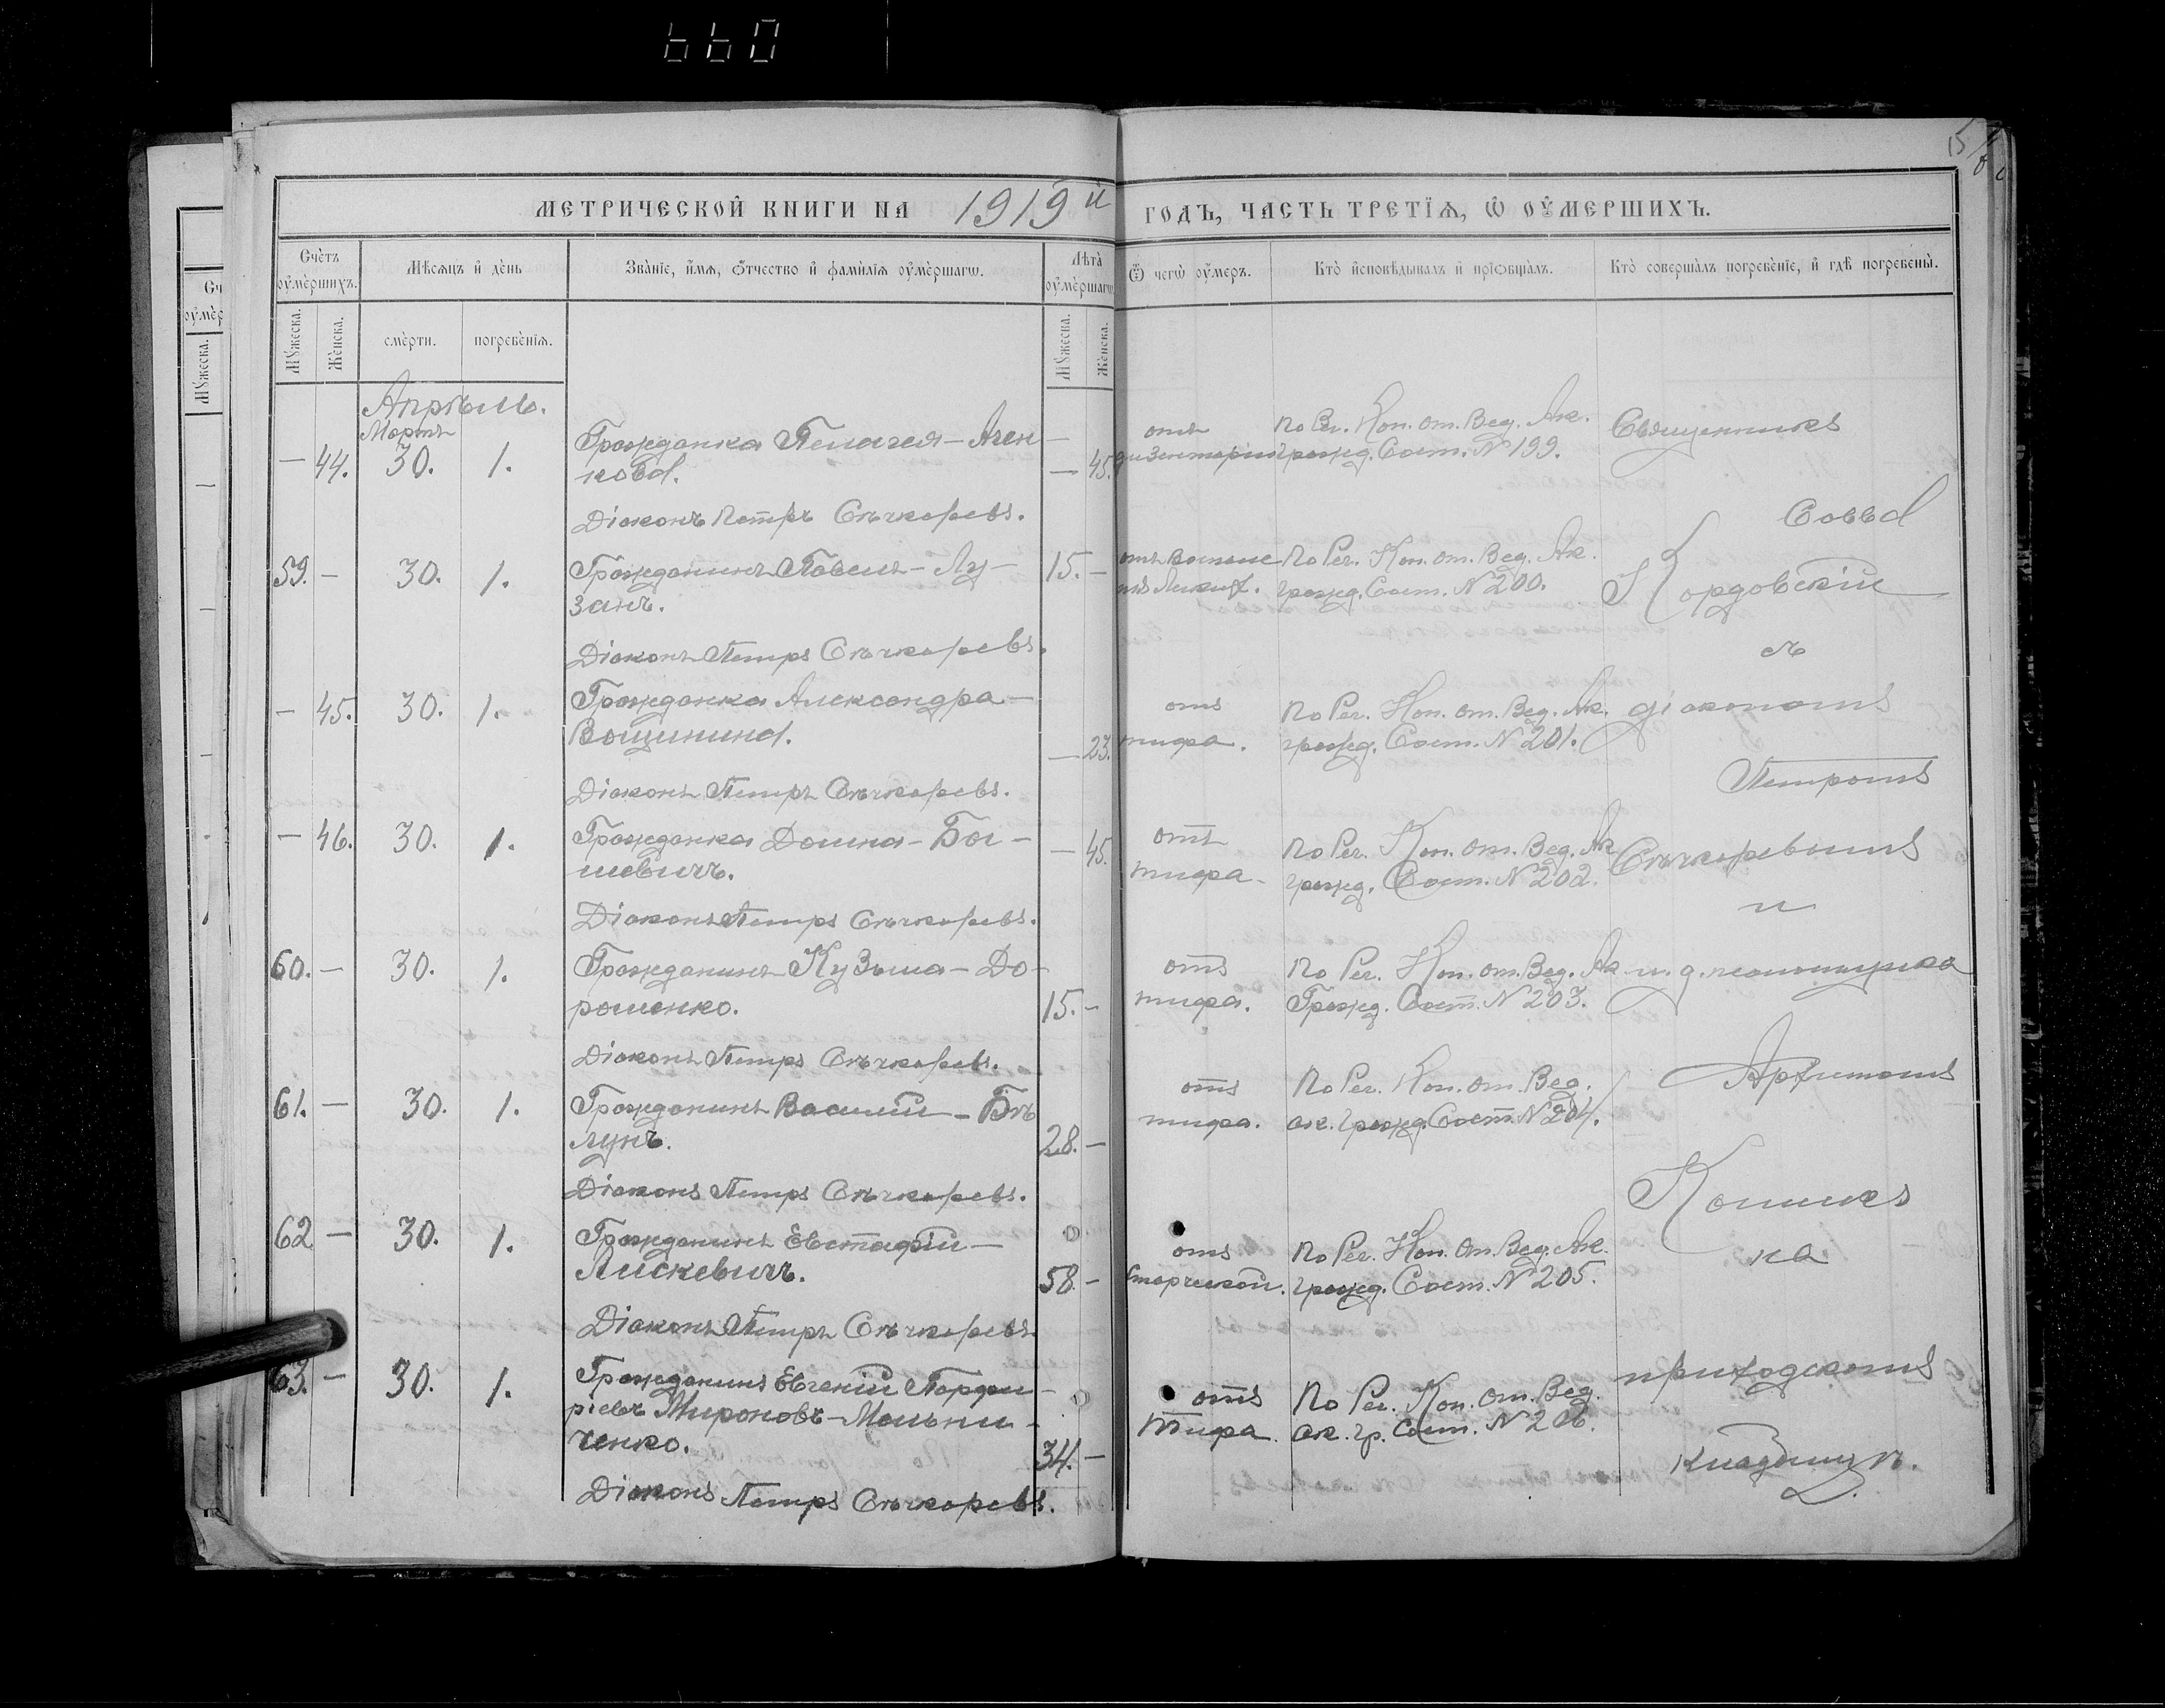 660
МЕТРИЧЕСКОЙ КНИГИ НА 1919й ГОДЪ, ЧАСТЬ ТРЕТІѦ, Ѡ ОУМЕРШИХЪ.
Счетъ оумершихъ.
Мѣсяцъ и день
Званіе, имя, отчество и фамилія оумершагѡ.
Лѣта оумершагѡ
Ѿ чегѡ оумеръ.
Кто исповѣдывалъ и пріѡбщалъ.
Кто совершалъ погребеніе, и гдѣ погребены.
Мужеска.
Женска.
смерти.
погребенія.
Мужеска.
Женска.
Апрѣль.
Мартъ
— 44. 30. 1. Гражданка Пелагея —
кова. — 45.
отъ
дизентеріи
По Рег. Кон. от. Вед. Ак.
гражд. Сост. № 199.
Діаконъ Петръ Снѣчкаревъ.
59. — 30. 1. Гражданинъ Павелъ — Лу—
занъ. 15. —
По Рег. Кон. от. Вед. Ак.
гражд. Сост. № 200.
Діаконъ Петръ Снѣчкаревъ.
— 45. 30. 1. Гражданка Александра —
Вощинина. — 23.
отъ
тифа.
По Рег. Кон. от. Вед. Ак.
гражд. Сост. № 201.
Діаконъ Петръ Снѣчкаревъ.
— 46. 30. 1. Гражданка Домна —
— 45.
отъ
тифа.
По Рег. Кон. от. Вед. Ак
гражд. Сост. № 202.
Діаконъ Петръ Снѣчкаревъ.
60. — 30. 1. Гражданинъ Кузьма — До-
рошенко. 15. —
отъ
тифа.
По Рег. Кон. от. Вед. Ак
Гражд. Сост. № 203.
Діаконъ Петръ Снѣчкаревъ.
61. — 30. 1. Гражданинъ Василій — Бѣ
лунъ. 28. —
отъ
тифа.
По Рег. Кон. от. Вед.
ак. гражд. Сост. № 204.
Діаконъ Петръ Снѣчкаревъ.
62 — 30. 1. Гражданинъ Евстафій —
Лискевичъ. 58. —
отъ
старческой.
По Рег. Кон. от. Вед. Ак.
гражд. Сост. № 205.
Діаконъ Петръ Снѣчкаревъ.
63. — 30. 1. Гражданинъ Евгеній Порфи-
ріевъ Мироновъ — Мельни-
ченко. 34. —
отъ
тифа
По Рег. Кон. от. Вед.
ак. гр. Сост. № 206.
Діаконъ Петръ Снѣчкаревъ.
Священникъ
Савва
Кордовскій
съ
діакономъ
Петромъ
Снѣчкаревымъ
и
и. д. псаломщика
на
приходскомъ
кладбищѣ.